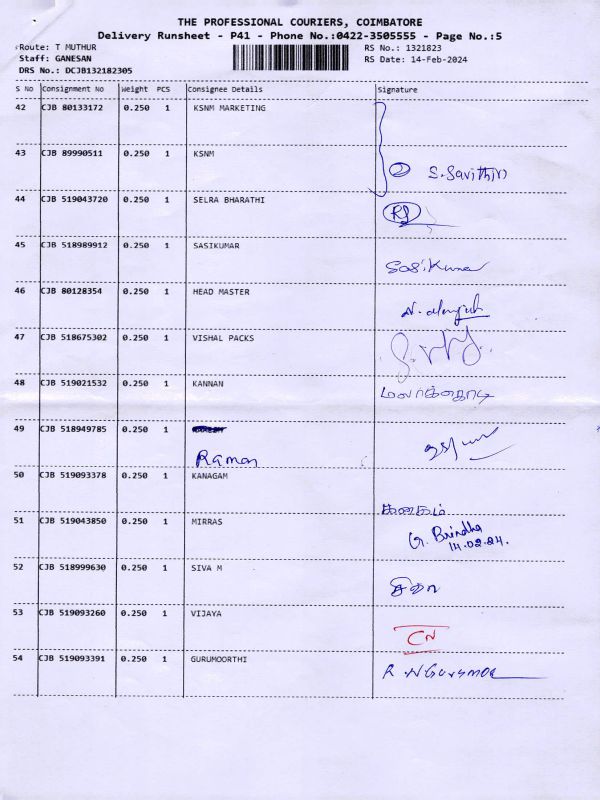 THE PROFESSIONAL COURIERS, COIMBATORE
Delivery Runsheet - P41 - Phone No.:0422-3505555 - Page No.:5
Route: T MUTHUR RS No.: 1321823
Staff: GANESAN RS Date: 14-Feb-2024
DRS No.: DCJB132182305
S No Consignment No Weight PCS Consignee Details Signature
42 CJB 80133172 0.250 1 KSNM MARKETING
43 CJB 89990511 0.250 1 KSNM
S. Savithiri
44 CJB 519043720 0.250 1 SELRA BHARATHI
45 CJB 518989912 0.250 1 SASIKUMAR
Sasikumar
46 CJB 80128354 0.250 1 HEAD MASTER
47 CJB 518675302 0.250 1 VISHAL PACKS
48 CJB 519021532 0.250 1 KANNAN
மலர்க்கொடி
49 CJB 518949785 0.250 1
Raman
50 CJB 519093378 0.250 1 KANAGAM
கனகம்
51 CJB 519043850 0.250 1 MIRRAS
G. Brindha
14.02.24.
52 CJB 518999630 0.250 1 SIVA M
சிவா
53 CJB 519093260 0.250 1 VIJAYA
CN
54 CJB 519093391 0.250 1 GURUMOORTHI